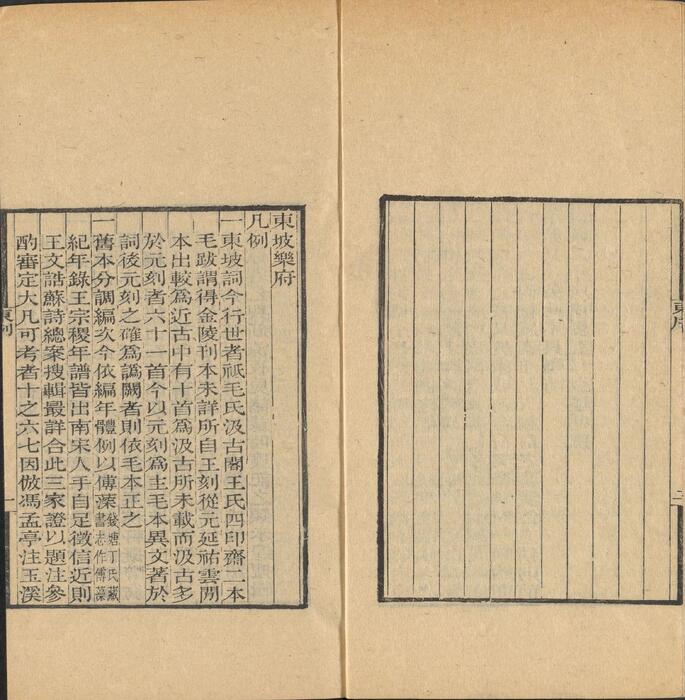 東坡樂府
凡例
一東坡詞今行世者祇毛氏汲古閣王氏四印齋二本
毛跋謂得金陵刊本未詳所自王刻從元延祐雲間
本出較爲近古中有十首爲汲古所未載而汲古多
於元刻者六十一首今以元刻爲主毛本異文著於
詞後元刻之確爲譌闕者則依毛本正之
一舊本分調編次今依編年體例以傅藻錢塘丁氏藏
書志作傅藻
紀年錄王宗稷年譜皆出南宋人手自足徵信近則
王文誥蘇詩總案搜輯最詳合此三家證以題注參
酌審定大凡可考者十之六七因倣馮孟亭注玉溪
東例
一
東序
二